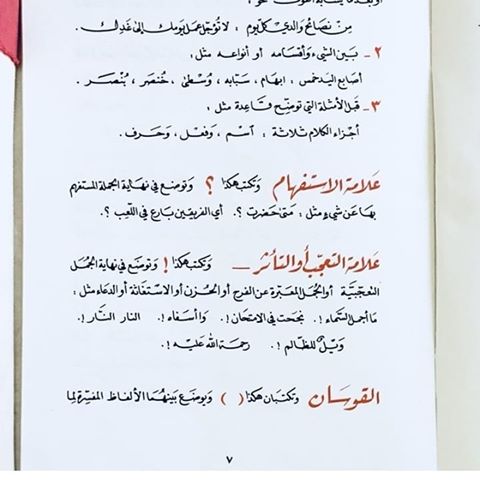 مِنْ نصائح والدي كل يوم : لا تُؤجّل عمل يومك إلى غَدِك .
٢ - بَين الشيء وأقسامه أو أنواعه مثل :
أصابع اليد خمس : ابهام ، سبّابه ، وُسطى ، خنصر ، بُنصر .
٣ - قبل الأمثلة التي توضّح قاعدة مثل :
أجزاء الكلام ثلاثة : اسم ، وفعل ، وحَرف .
علامة الاستفهام وتكتب هكذا ؟ وتوضع في نهاية الجملة المستفهم
بها عن شيءٍ مثل : متى حضرت ؟ . أي الفريقين بارع في اللعب ؟ .
علامة التعجّب أو التأثر — وتكتب هكذا ! وتوضع في نهاية الجُمل
التعجّبيّة أو الجُمل المعبّرة عن الفرح أو الحُزن أو الاستغاثة أو الدعاء مثل :
ما أجملَ السّماء ! . نجحت في الامتحان ! . وا أسفاه ! . النار النّار ! .
ويلٌ للظالم ! . رحمة الله عليه ! .
القوسان وتكتبان هكذا ( ) ويوضع بينهُما الألفاظ المفسّرة لِما
٧